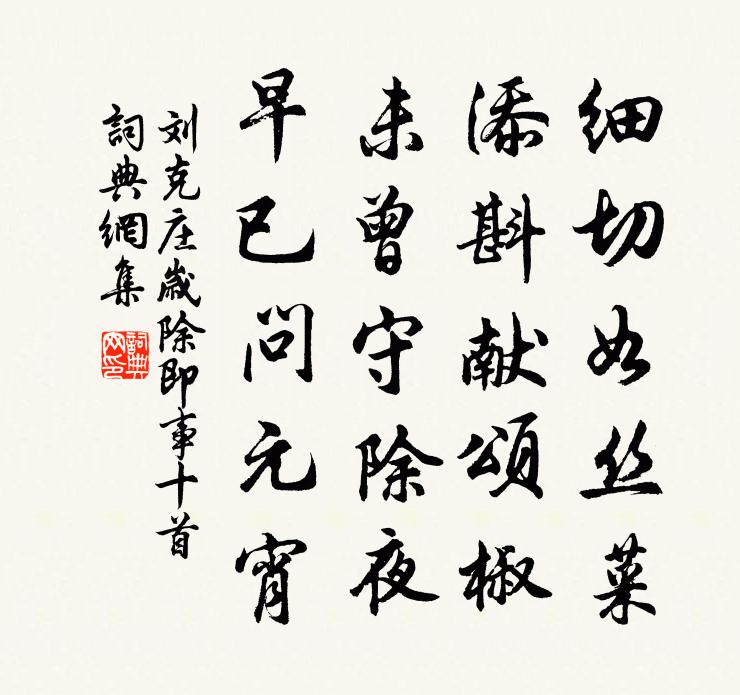 细切如丝菜
添斟献颂椒
未曾守除夜
早已问元宵
刘克庄歲除即事十首
詞典網集
詞典網印